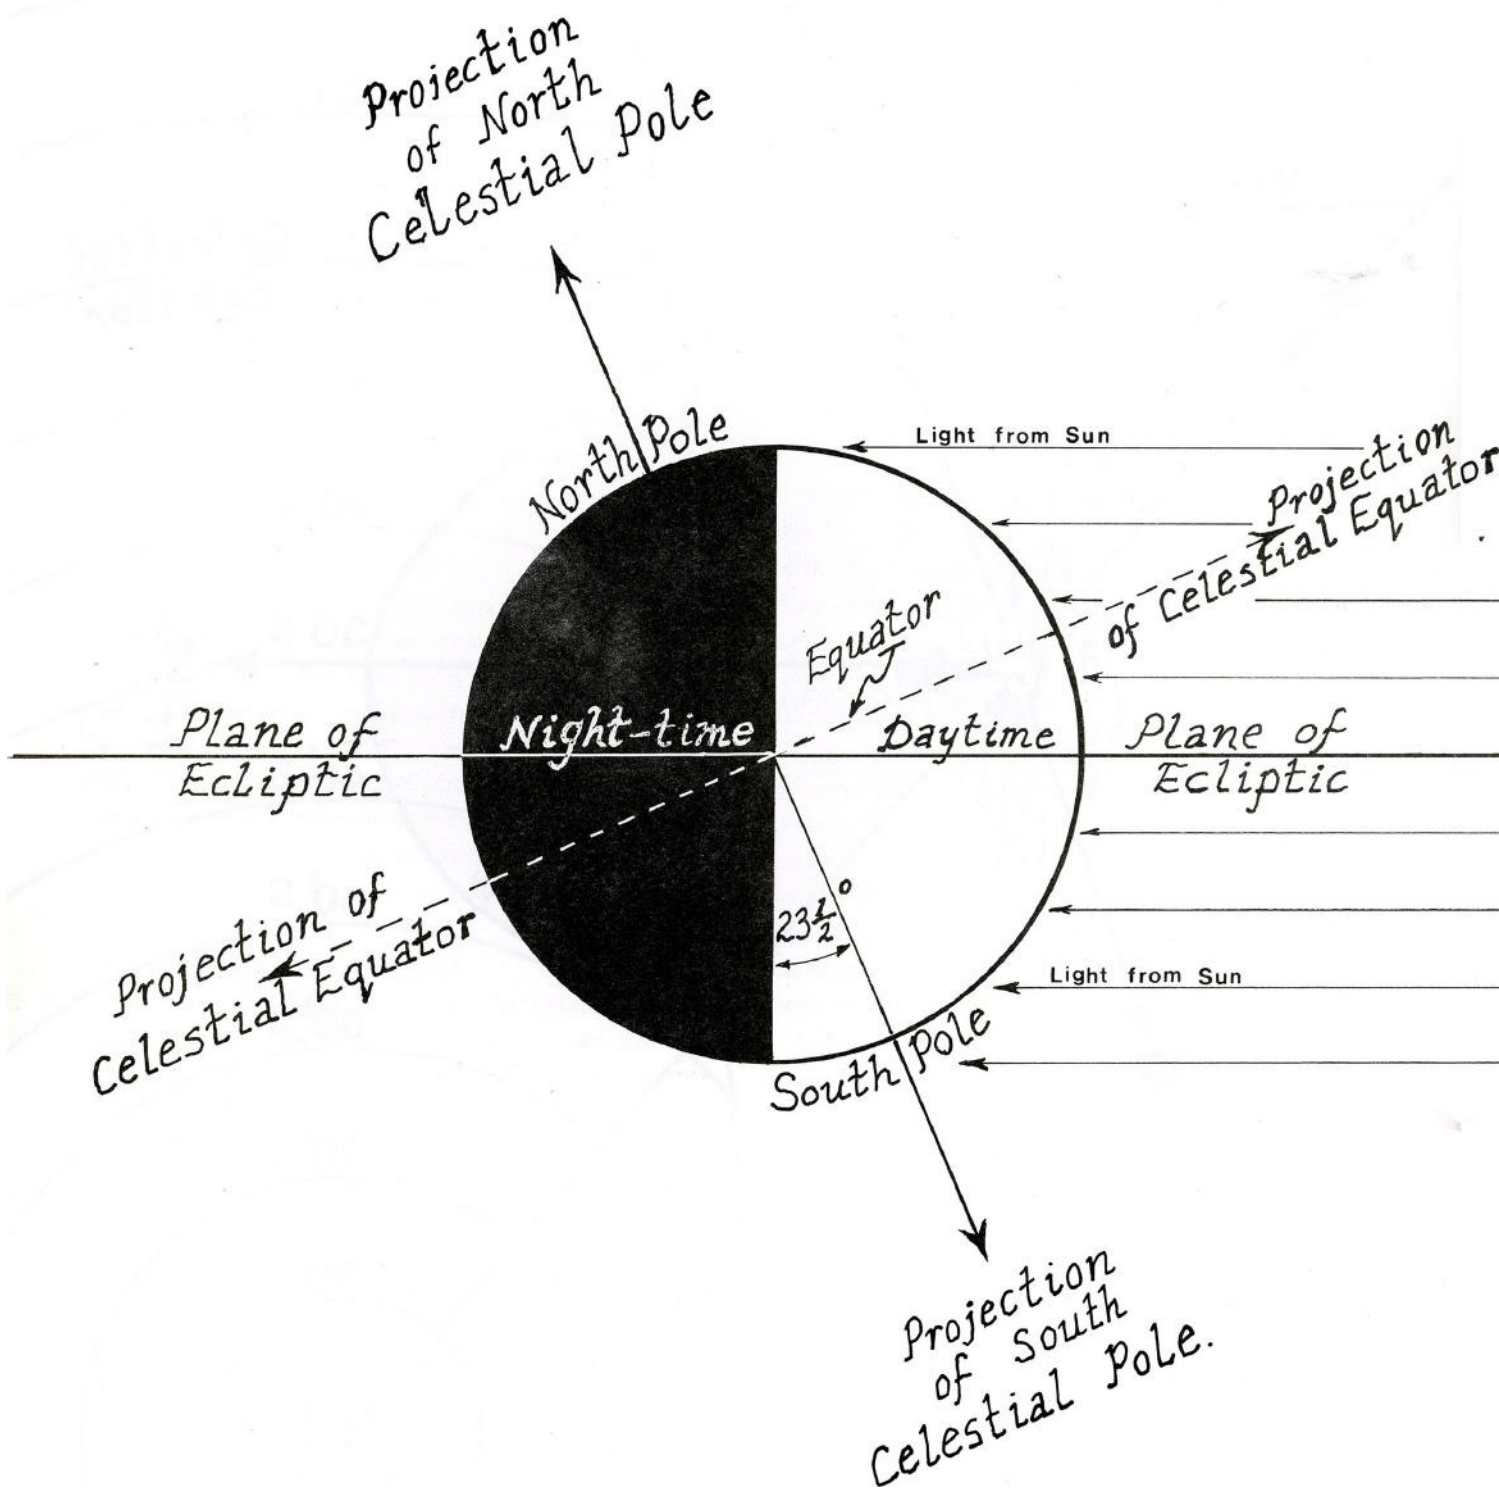 Projection
of North
Celestial Pole
North Pole
Light from Sun
Projection
of Celestial Equator
Equator
Plane of
Ecliptic
Night-time
Daytime
Plane of
Ecliptic
23 1/2 °
Projection of
Celestial Equator
Light from Sun
South Pole
Projection
of South
Celestial Pole.